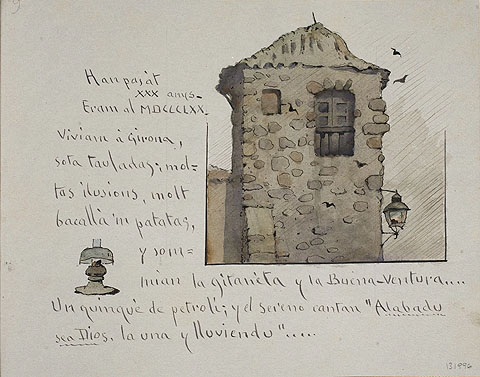 Han passat
XXX anys_
Eram al MDCCCLXX_
Viviam á Girona,
sota tauladas; mol=
tas ilusions, molt
bacallá 'm patatas,
y som=
nian la gitaneta y la Buena-Ventura....
Un quinqué de petroli; y el sereno cantan "Alabadu
sea Dios, la una y lluviendu".....
131996